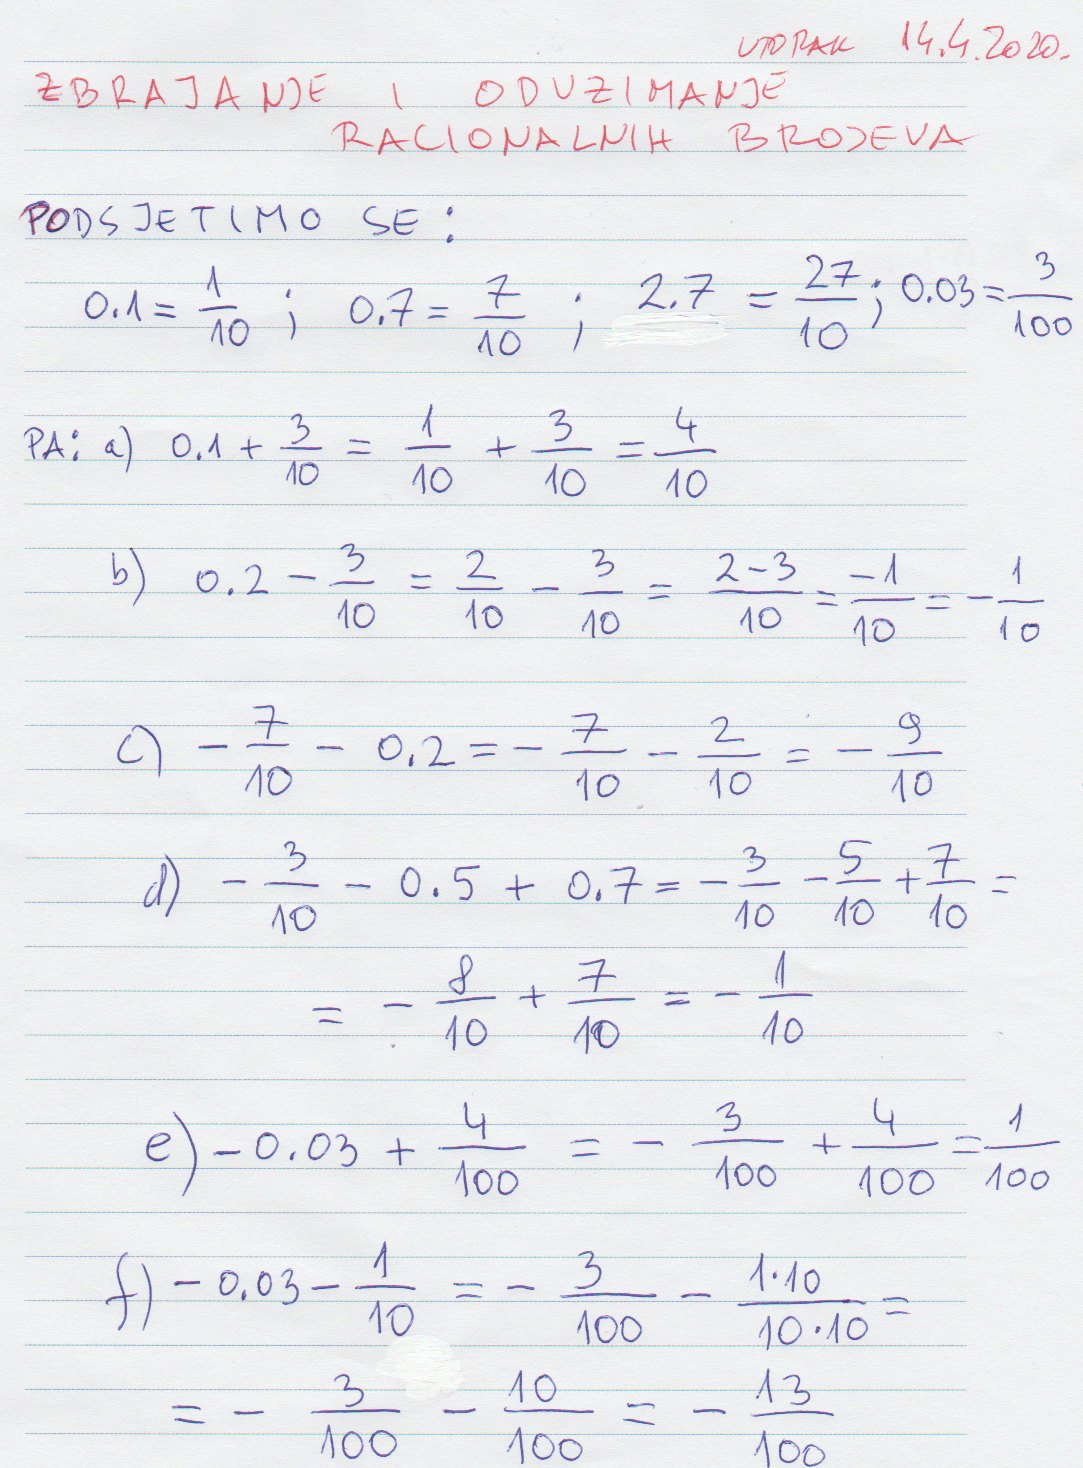 UTORAK 14.4.2020.
ZBRAJANJE I ODUZIMANJE
RACIONALNIH BROJEVA
PODSJETIMO SE:
0.1 = 1/10 ; 0.7 = 7/10 ; 2.7 = 27/10 ; 0.03 = 3/100
PA: a) 0.1 + 3/10 = 1/10 + 3/10 = 4/10
b) 0.2 - 3/10 = 2/10 - 3/10 = (2-3)/10 = -1/10 = - 1/10
c) - 7/10 - 0.2 = - 7/10 - 2/10 = - 9/10
d) - 3/10 - 0.5 + 0.7 = - 3/10 - 5/10 + 7/10 =
= - 8/10 + 7/10 = - 1/10
e) - 0.03 + 4/100 = - 3/100 + 4/100 = 1/100
f) - 0.03 - 1/10 = - 3/100 - (1·10)/(10·10) =
= - 3/100 - 10/100 = - 13/100